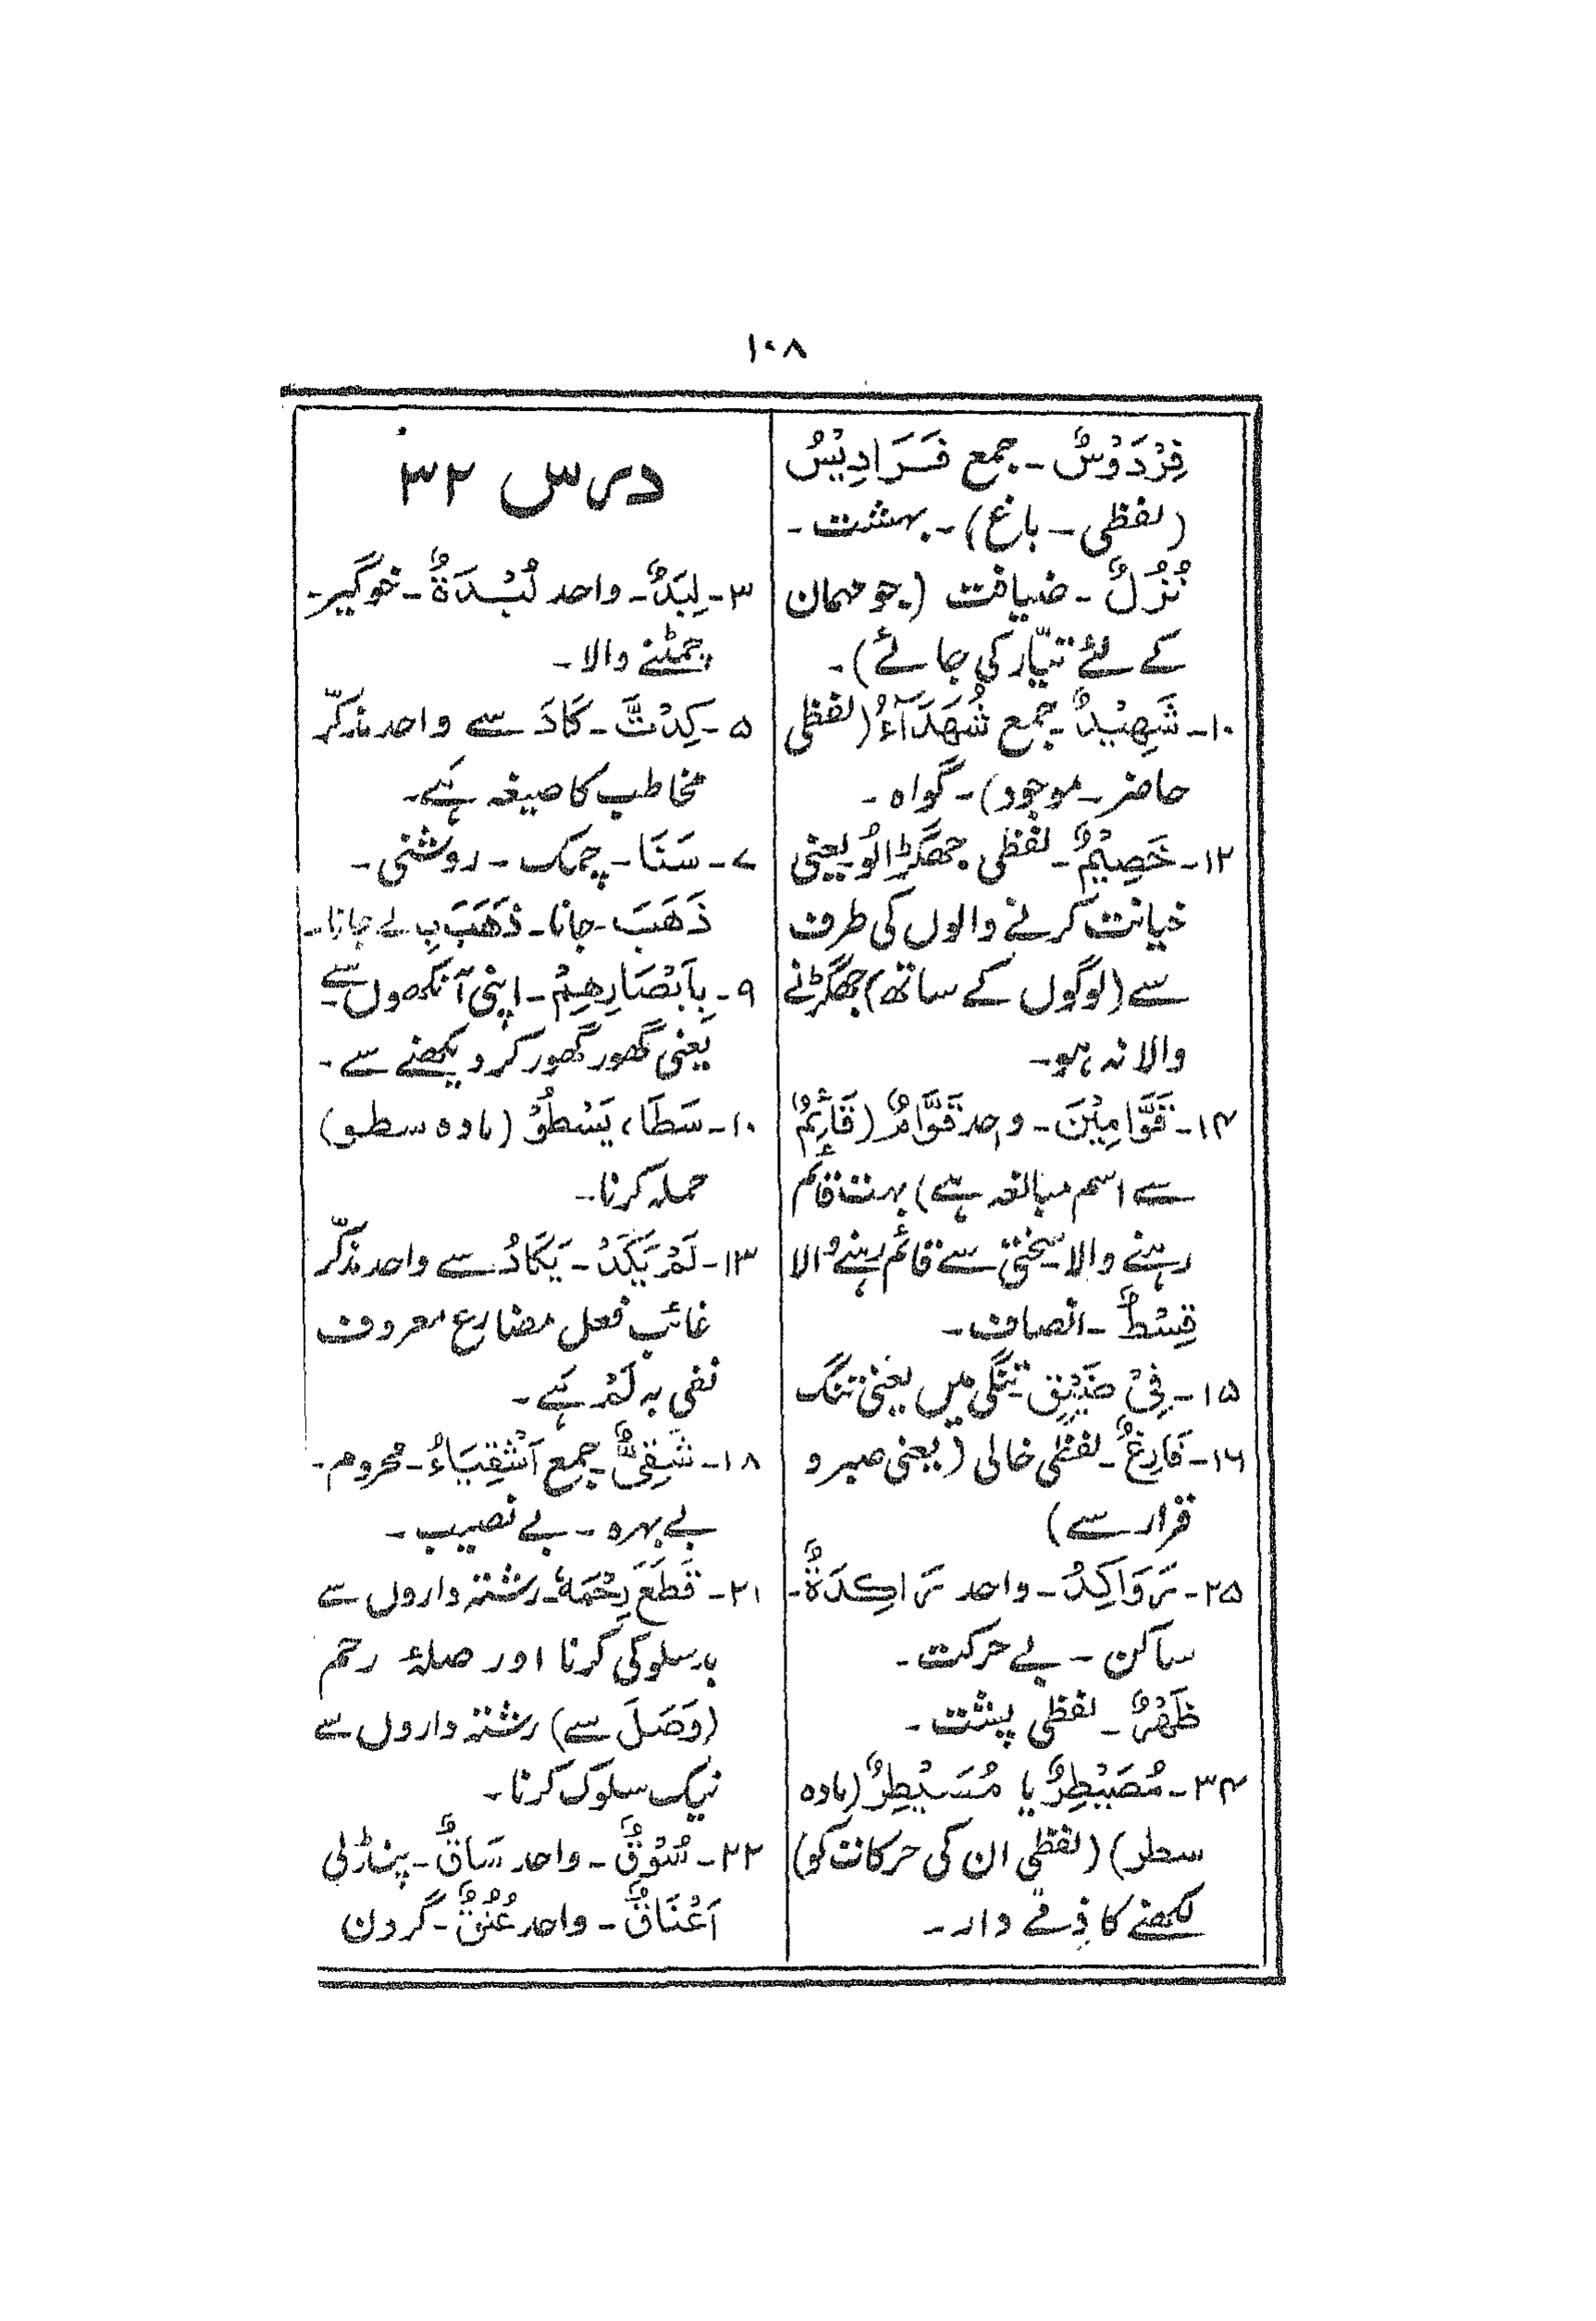 ۱۰۸
فِرْدَوْسٌ - جمع فَرَادِيْسُ
(لفظی - باغ) - بہشت -
نُزُلٌ - ضیافت (جو مہمان
کے لئے تیّار کی جائے) -
۱۰- شَهِيْدٌ - جمع شُهَدَآءُ (لفظی
حاضر - موجود) - گواہ -
۱۲- خَصِيْمٌ - لفظی جھگڑالُو - یعنی
خیانت کرنے والوں کی طرف
سے (لوگوں کے ساتھ) جھگڑنے
والا نہ ہو -
۱۴- قَوَّامِيْنَ - واحد قَوَّامٌ (قَائِمٌ
سے اسم مبالغہ ہے) بہت قائم
رہنے والا سختی سے قائم رہنے والا
قِسْطٌ - انصاف -
۱۵- فِيْ ضَيْقٍ - تنگی میں یعنی تنگ
۱۶- فَارِغٌ - لفظی خالی (یعنی صبر و
قرار سے)
۲۵- رَوَاكِدُ - واحد رَاكِدَةٌ -
ساکن - بے حرکت -
ظَهْرٌ - لفظی پشت -
۳۴- مُصَيْطِرٌ یا مُسَيْطِرٌ (مادہ
سطر) (لفظی ان کی حرکات کو)
لکھنے کا ذمّے دار -
درس ۳۲
۳- لِبَدٌ - واحد لُبْدَةٌ - خوگیر -
چمٹنے والا -
۵- كِدْتَّ - كَادَ سے واحد مذکّر
مخاطب کا صیغہ ہے -
۷- سَنَا - چمک - روشنی -
ذَهَبَ - جانا - ذَهَبَ بِ لے جانا -
۹- بِاَبْصَارِهِمْ - اپنی آنکھوں سے -
یعنی گھور گھور کر دیکھنے سے -
۱۰- سَطَا، يَسْطُوْ (مادہ سطو)
حملہ کرنا -
۱۳- لَمْ يَكَدْ - يَكَادُ سے واحد مذکّر
غائب فعل مضارع معروف
نفی بہ لَمْ ہے -
۱۸- شَقِيٌّ - جمع اَشْقِيَاءُ - محروم -
بے بہرہ - بے نصیب -
۲۱- قَطَعَ رِحْمَهٗ - رشتہ داروں سے
بدسلوکی کرنا اور صلۂ رحم
(وَصَلَ سے) رشتہ داروں سے
نیک سلوک کرنا -
۲۲- سُوْقٌ - واحد سَاقٌ - پنڈلی
اَعْنَاقٌ - واحد عُنُقٌ - گردن